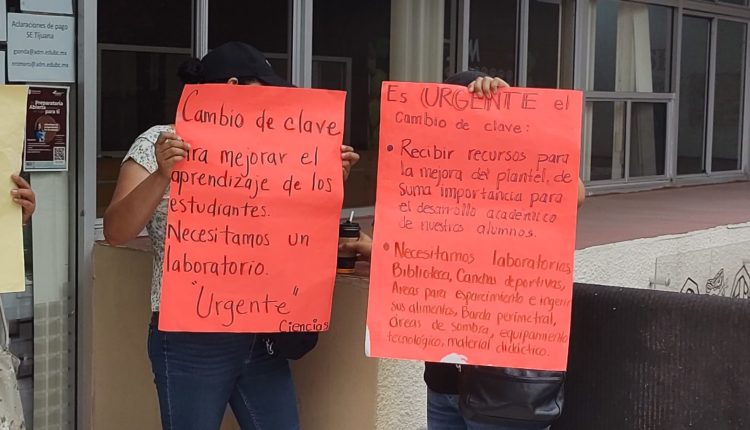 Aclaraciones de pago
SE Tijuana
Preparatoria
Abierta
para ti
Cambio de clave
para mejorar el
aprendizaje de los
estudiantes.
Necesitamos un
laboratorio.
"Urgente"
Ciencias
Es URGENTE el
Cambio de clave:
• Recibir recursos para
la mejora del plantel, de
suma importancia para
el desarrollo académico
de nuestros alumnos.
• Necesitamos laboratorios
Biblioteca, Canchas deportivas,
Areas para esparcimiento e ingerir
sus alimentos, Barda perimetral,
áreas de sombra, equipamiento
tecnológico, material didáctico.